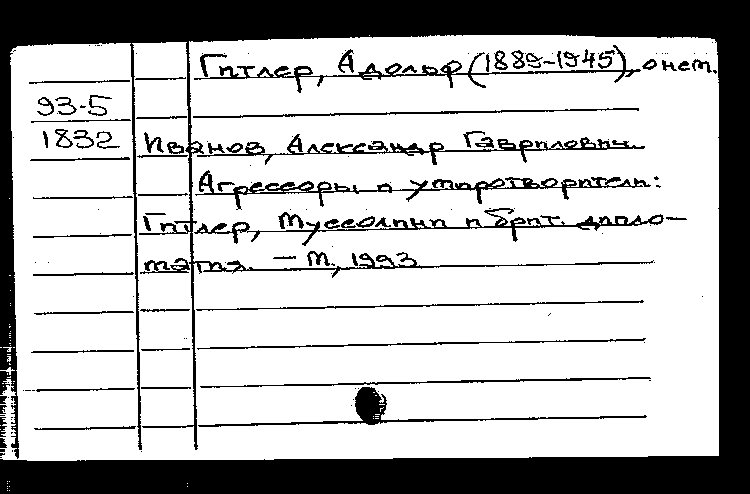 Гитлер, Адольф (1889-1945), о нем.
93-5
1832 Иванов, Александр Гаврилович.
Агрессоры и умиротворители:
Гитлер, Муссолини и брит. дипло-
матия. – М., 1993